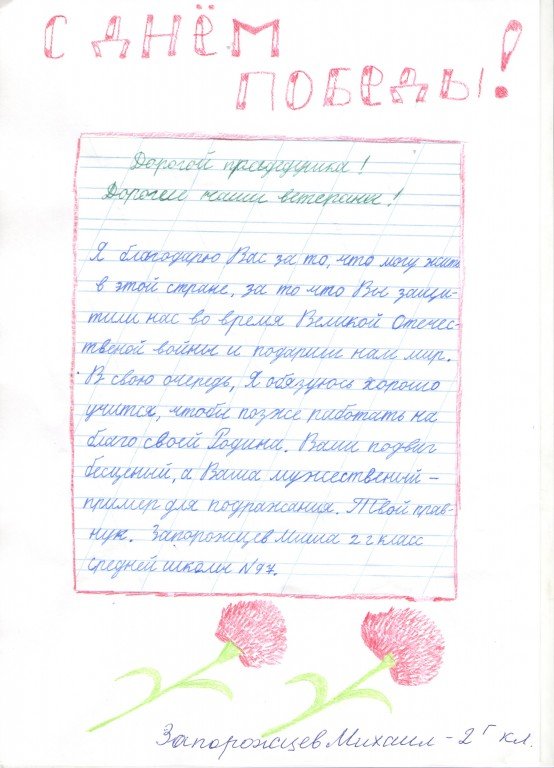 С ДНЁМ
ПОБЕДЫ!
Дорогой прадедушка!
Дорогие наши ветераны!
Я благодарю Вас за то, что могу жить
в этой стране, за то что Вы защи-
тили нас во время Великой Отечес-
твеной войны и подарили нам мир.
В свою очередь, Я обязуюсь хорошо
учится, чтобы позже работать на
благо своей Родины. Ваш подвиг
бесценый, а Ваша мужественый -
пример для подражания. Твой прав-
нук. Запорожцев Миша 2 г класс
средней школы №97.
Запорожцев Михаил - 2 г кл.